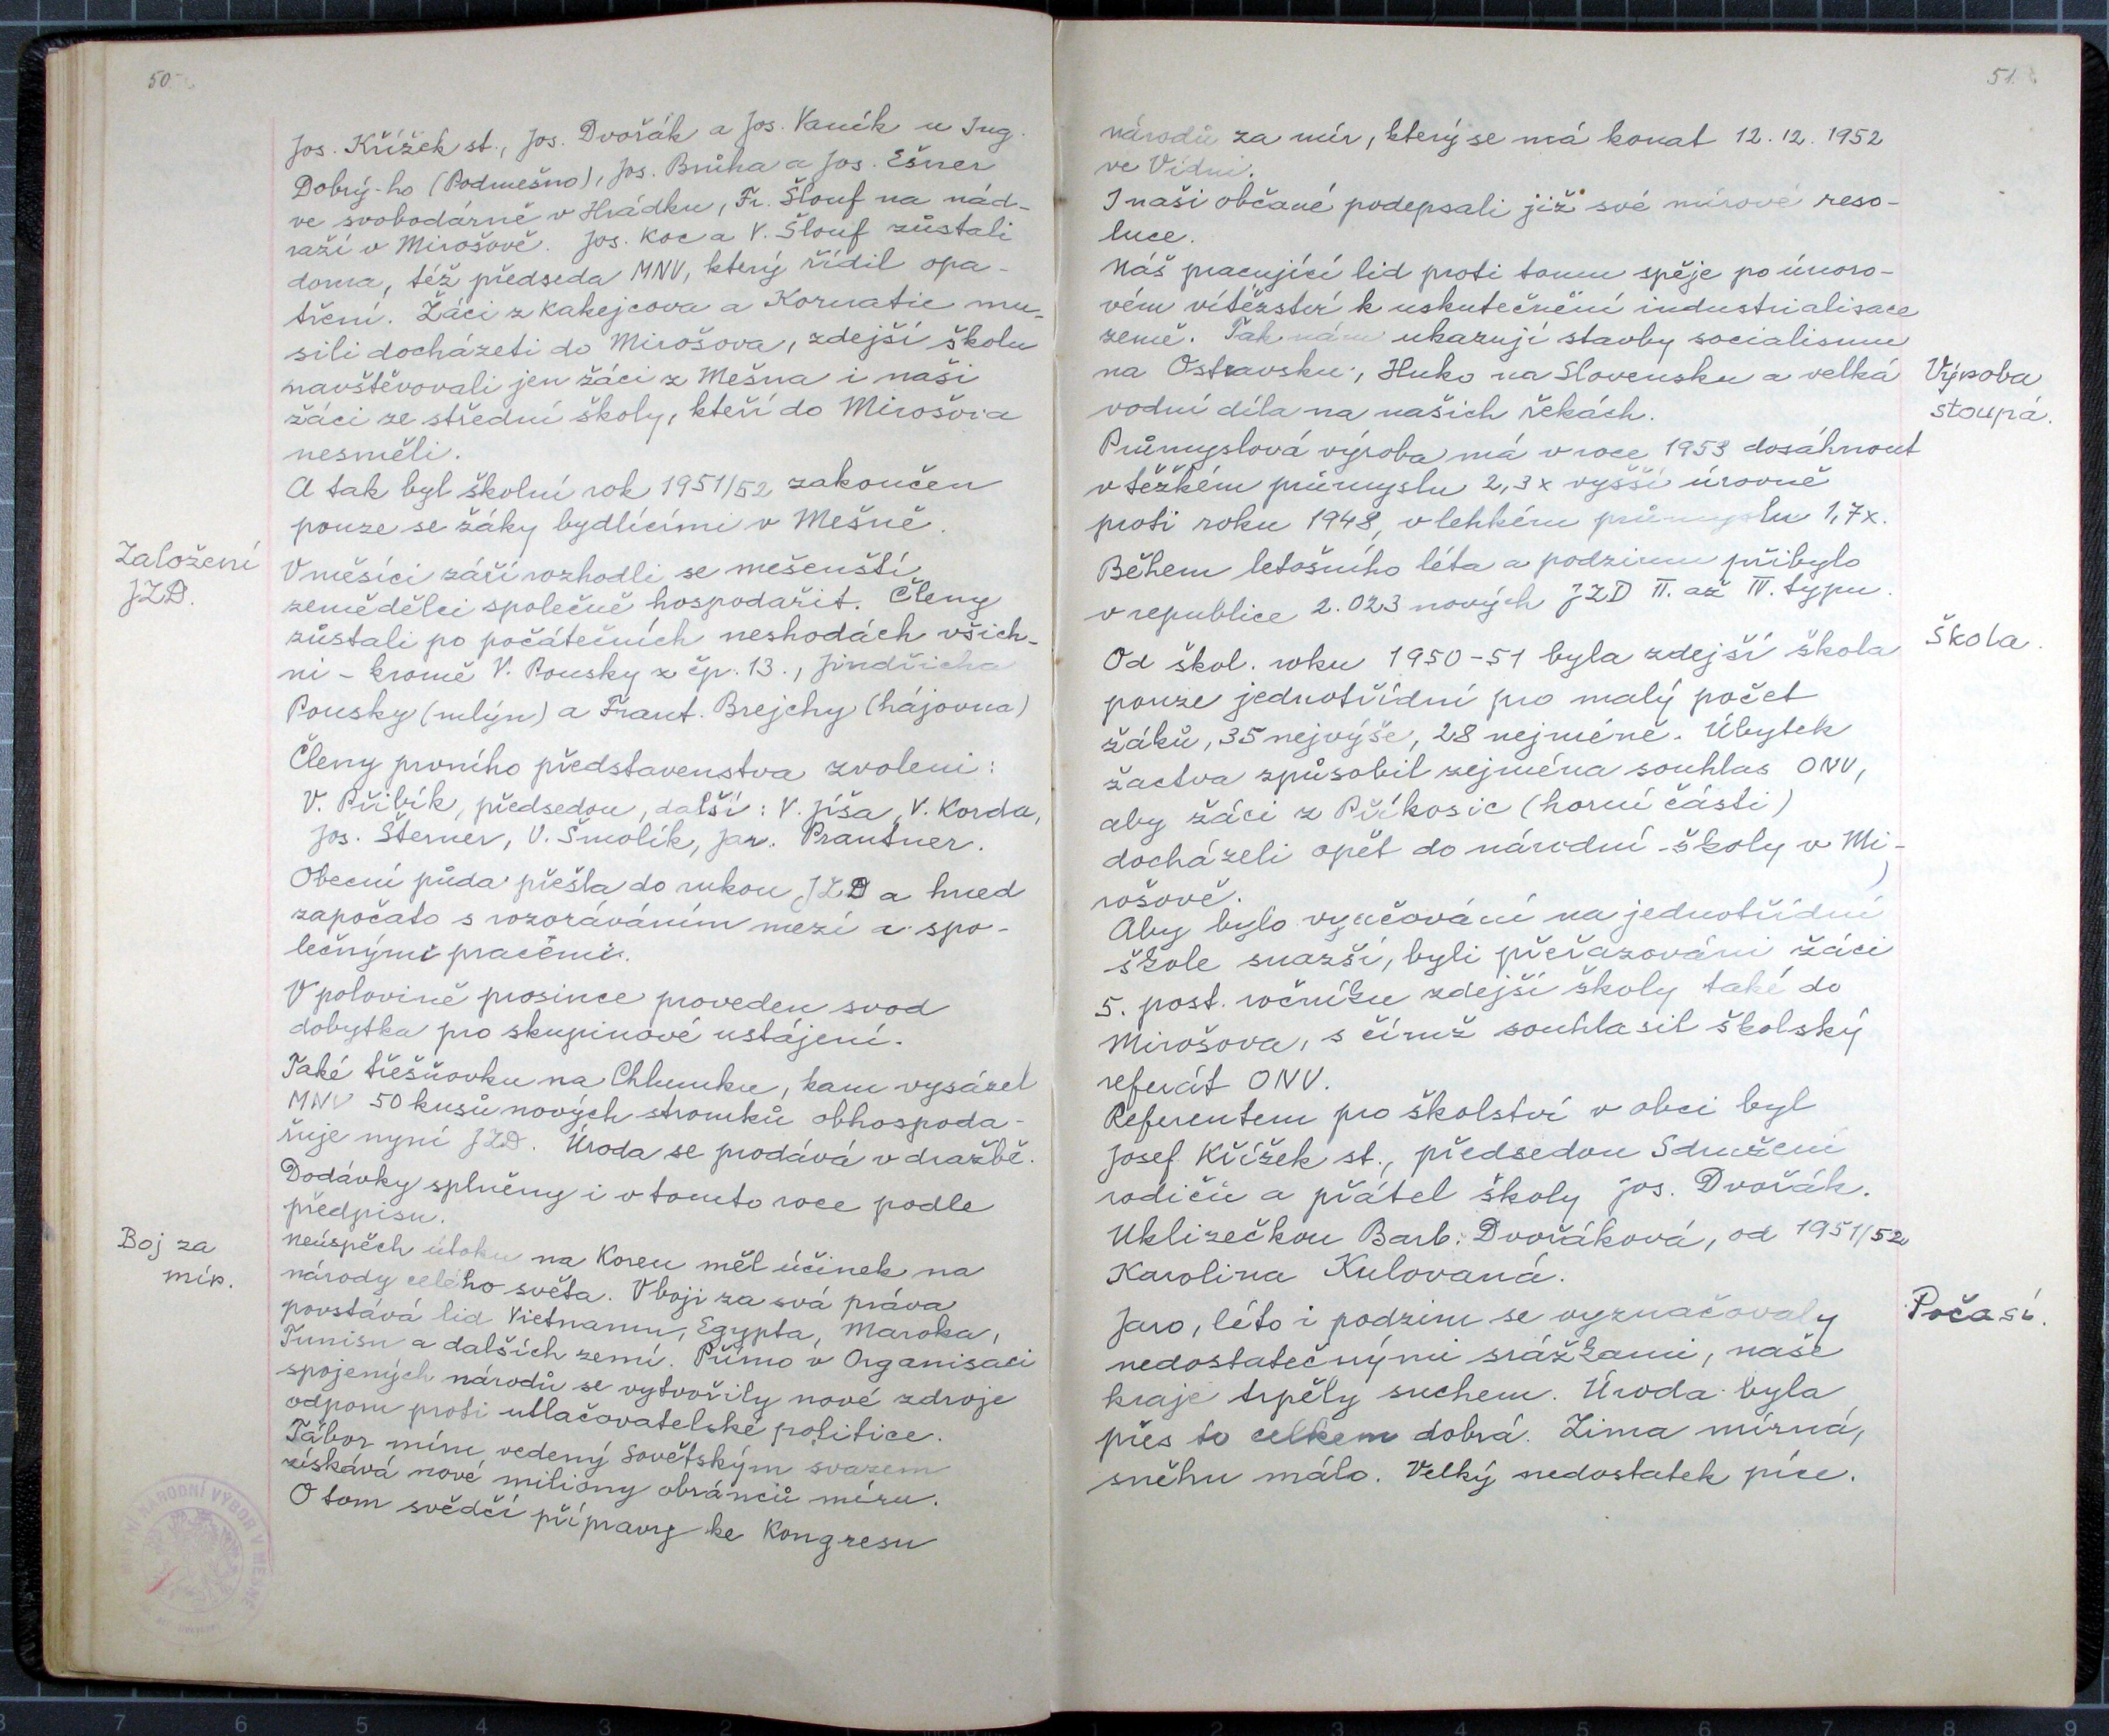 50.
Jos. Křížek st., Jos. Dvořák a Jos. Vaník u Ing.
Dobrý-ho (Podmešno), Jos. Brůha a Jos. Ešner
ve svobodárně v Hrádku, Fr. Šlouf na nád-
raží v Mirošově. Jos. Koc a V. Šlouf zůstali
doma, též předseda MNV, který řídil opa-
tření. Žáci z Kakejcova a Kornatic mu-
sili docházeti do Mirošova, zdejší školu
navštěvovali jen žáci z Mešna i naši
žáci ze střední školy, kteří do Mirošova
nesměli.
A tak byl školní rok 1951/52 zakončen
pouze se žáky bydlícími v Mešně.
Založení
JZD.
V měsíci září rozhodli se mešenští
zemědělci společně hospodařit. Členy
zůstali po počátečních neshodách všich-
ni - kromě V. Pousky z čp. 13., Jindřicha
Pousky (mlýn) a Frant. Brejchy (hájovna)
Členy prvního představenstva zvoleni:
V. Přibík, předsedou, další: V. Jíša, V. Korda,
Jos. Šterner, V. Smolík, Jar. Prantner.
Obecní půda přešla do rukou JZD a hned
započato s rozoráváním mezí a spo-
lečnými pracemi.
V polovině prosince proveden svod
dobytka pro skupinové ustájení.
Také třešňovku na Chlumku, kam vysázel
MNV 50 kusů nových stromků obhospoda-
řuje nyní JZD. Úroda se prodává v dražbě.
Dodávky splněny i v tomto roce podle
předpisu.
Boj za
mír.
Neúspěch útoku na Koreu měl účinek na
národy celého světa. V boji za svá práva
povstává lid Vietnamu, Egypta, Maroka,
Tunisu a dalších zemí. Přímo v Organisaci
spojených národů se vytvořily nové zdroje
odporu proti utlačovatelské politice.
Tábor míru vedený Sovětským svazem
získává nové miliony obránců míru.
O tom svědčí přípravy ke Kongresu
NÍ NÁRODNÍ VÝBOR V MEŠNĚ
51.
národů za mír, který se má konat 12.12. 1952
ve Vídni.
I naši občané podepsali již své mírové reso-
luce.
Náš pracující lid proti tomu spěje po únoro-
vém vítězství k uskutečnění industrialisace
země. Tak nám ukazují stavby socialismu
na Ostravsku, Huko na Slovensku a velká
vodní díla na našich řekách.
Výroba
stoupá.
Průmyslová výroba má v roce 1953 dosáhnout
v těžkém průmyslu 2,3x vyšší úrovně
proti roku 1948, v lehkém průmyslu 1,7x.
Během letošního léta a podzimu přibylo
v republice 2.023 nových JZD II. až IV. typu.
Škola.
Od škol. roku 1950-51 byla zdejší škola
pouze jednotřídní pro malý počet
žáků, 35 nejvýše, 28 nejméně. Úbytek
žactva způsobil zejména souhlas ONV,
aby žáci z Příkosic (horní části)
docházeli opět do národní školy v Mi-
rošově.
Aby bylo vyučování na jednotřídní
škole snazší, byli přeřazováni žáci
5. post. ročníku zdejší školy také do
Mirošova, s čímž souhlasil školský
referát ONV.
Referentem pro školství v obci byl
Josef Křížek st., předsedou Sdružení
rodičů a přátel školy Jos. Dvořák.
Uklizečkou Barb. Dvořáková, od 1951/52
Karolina Kulovaná.
Počasí.
Jaro, léto i podzim se vyznačovaly
nedostatečnými srážkami, naše
kraje trpěly suchem. Úroda byla
přes to celkem dobrá. Zima mírná,
sněhu málo. Velký nedostatek píce.
7 6 5 4 3 2 1 1 2 3 4 5 6 7 8 9